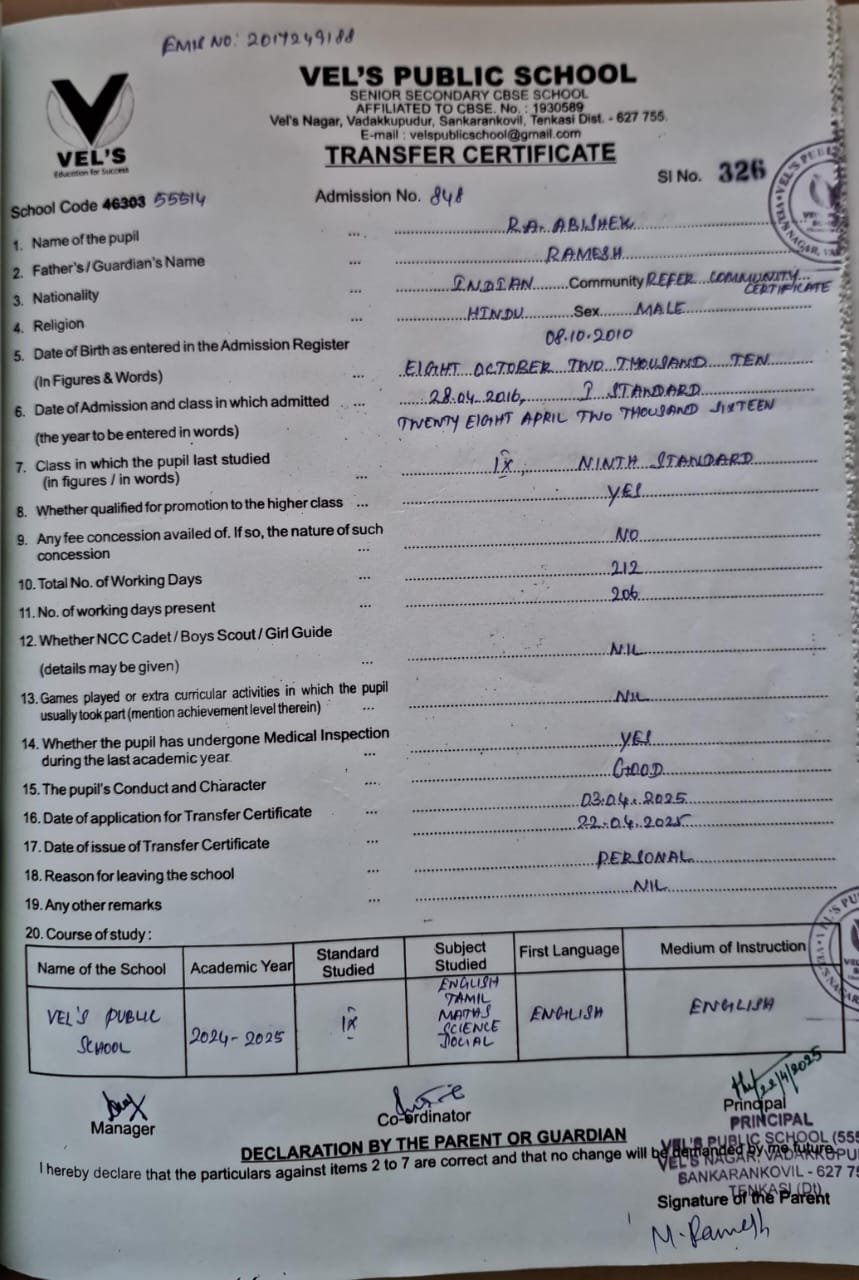 EMIS NO: 2017249188
VEL'S PUBLIC SCHOOL
SENIOR SECONDARY CBSE SCHOOL
AFFILIATED TO CBSE. No. : 1930589
Vel's Nagar, Vadakkupudur, Sankarankovil, Tenkasi Dist. - 627 755.
E-mail : velspublicschool@gmail.com
VEL'S
Education for Success
TRANSFER CERTIFICATE
SI No. 326
School Code 46303 55514 Admission No. 848
1. Name of the pupil ... R.A. ABISHEK
2. Father's / Guardian's Name ... RAMESH
3. Nationality ... INDIAN Community REFER COMMUNITY CERTIFICATE
4. Religion ... HINDU Sex MALE
5. Date of Birth as entered in the Admission Register 08.10.2010
(In Figures & Words) ... EIGHT OCTOBER TWO THOUSAND TEN
6. Date of Admission and class in which admitted ... 28.04.2016, I STANDARD
(the year to be entered in words) TWENTY EIGHT APRIL TWO THOUSAND SIXTEEN
7. Class in which the pupil last studied
(in figures / in words) ... IX, NINTH STANDARD
8. Whether qualified for promotion to the higher class ... YES
9. Any fee concession availed of. If so, the nature of such
concession ... NO
10. Total No. of Working Days ... 212
11. No. of working days present ... 206
12. Whether NCC Cadet / Boys Scout / Girl Guide
(details may be given) ... NIL
13. Games played or extra curricular activities in which the pupil
usually took part (mention achievement level therein) ... NIL
14. Whether the pupil has undergone Medical Inspection
during the last academic year ... YES
15. The pupil's Conduct and Character ... GOOD
16. Date of application for Transfer Certificate ... 03.04.2025
17. Date of issue of Transfer Certificate ... 22.04.2025
18. Reason for leaving the school ... PERSONAL
19. Any other remarks ... NIL
20. Course of study :
Name of the School Academic Year Standard Studied Subject Studied First Language Medium of Instruction
VEL'S PUBLIC SCHOOL 2024-2025 IX ENGLISH TAMIL MATHS SCIENCE SOCIAL ENGLISH ENGLISH
22/4/2025
Manager Co-ordinator Principal
PRINCIPAL
VEL'S PUBLIC SCHOOL (555
VEL'S NAGAR, VADAKKUPU
SANKARANKOVIL - 627 75
TENKASI (Dt)
DECLARATION BY THE PARENT OR GUARDIAN
I hereby declare that the particulars against items 2 to 7 are correct and that no change will be demanded by me future.
Signature of the Parent
M. Ramesh